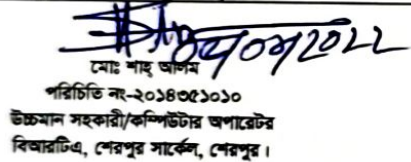 ০৮/০৮/2022
মোঃ শাহ আলম
পরিচিতি নং-২০১৪৩৫১০১০
উচ্চমান সহকারী/কম্পিউটার অপারেটর
বিআরটিএ, শেরপুর সার্কেল, শেরপুর।